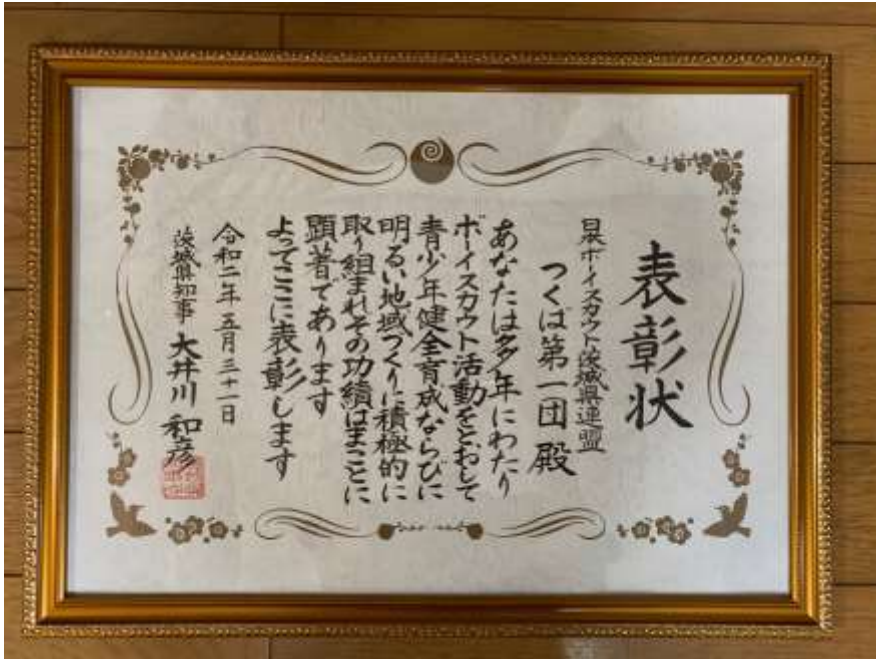 表彰状
日本ボーイスカウト茨城県連盟
つくば第一団 殿
あなたは多年にわたり
ボーイスカウト活動をとおして
青少年健全育成ならびに
明るい地域づくりに積極的に
取り組まれその功績はまことに
顕著であります
よってここに表彰します
令和二年五月三十一日
茨城県知事 大井川 和彦